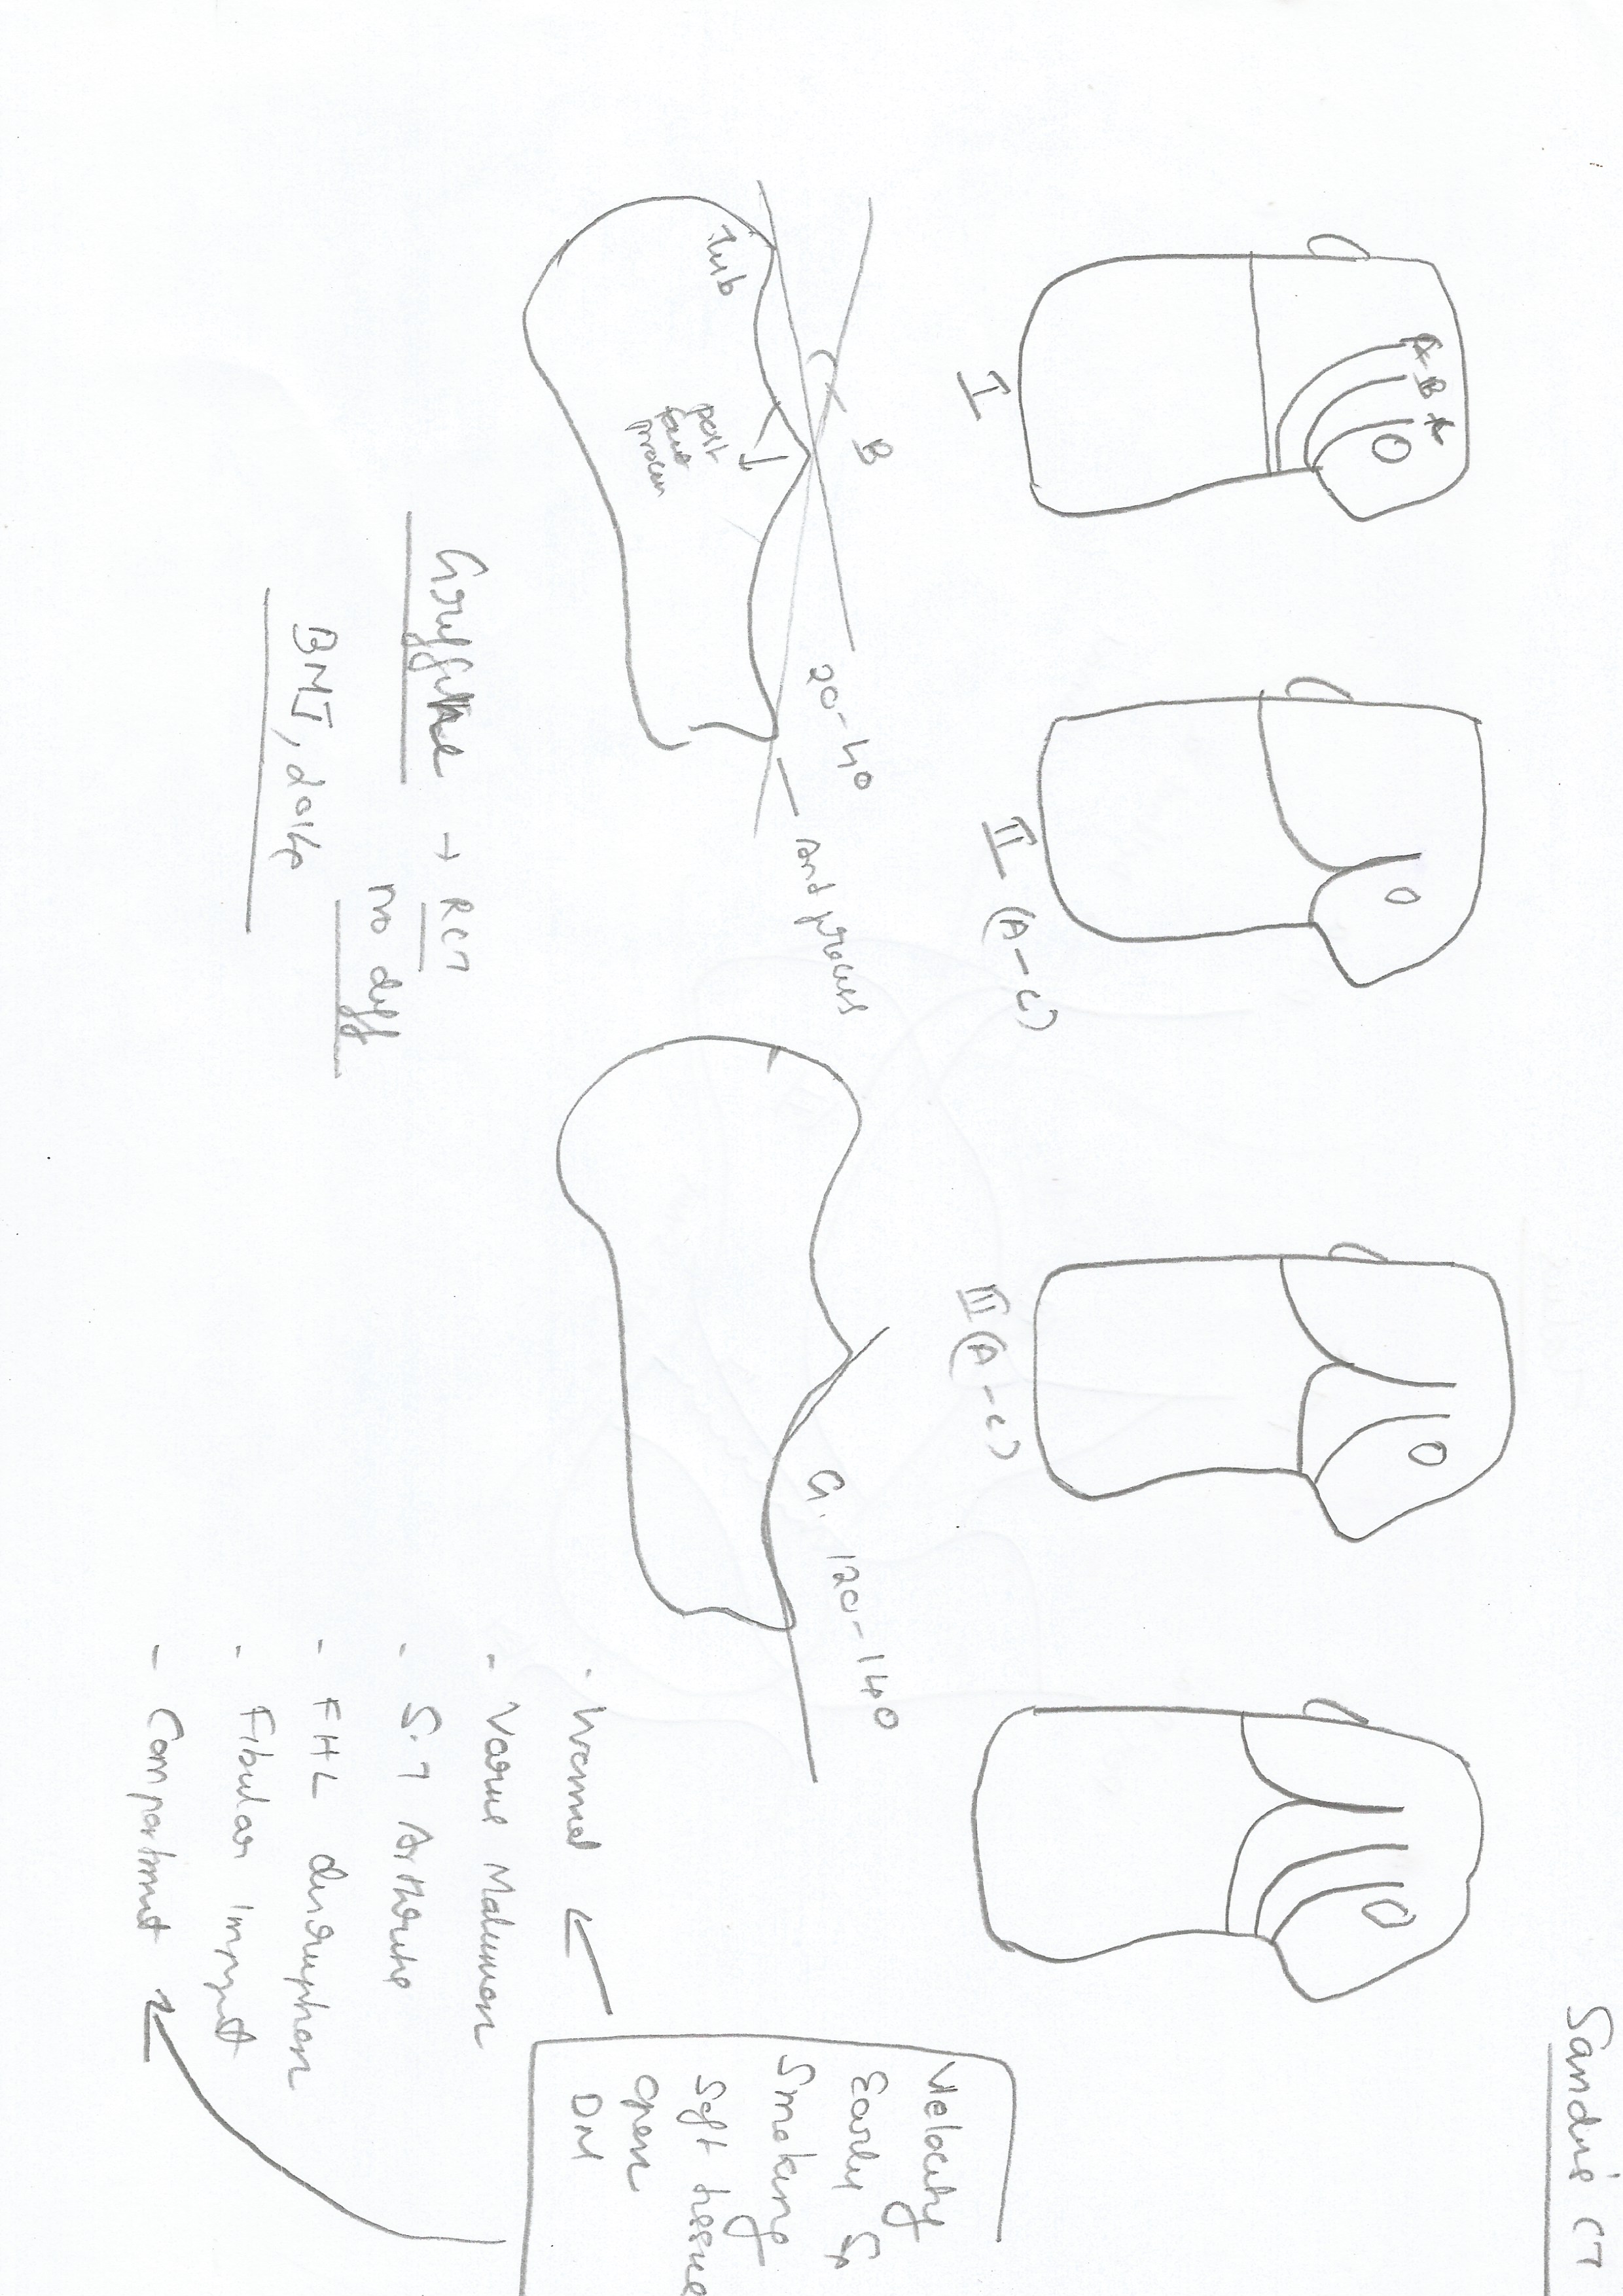 Sander's CT
A B A
I
II (A-C)
III (A-C)
B
20-40
Ant process
Tub
post
facet
process
G. 120-140
Velocity
Early
Smoking
Soft tissue
Open
DM
- Wound
- Varus Malunion
- S.T Arthritis
- FHL disruption
- Fibular
- Compartment
→ RCT
no diff
BMJ, 2014